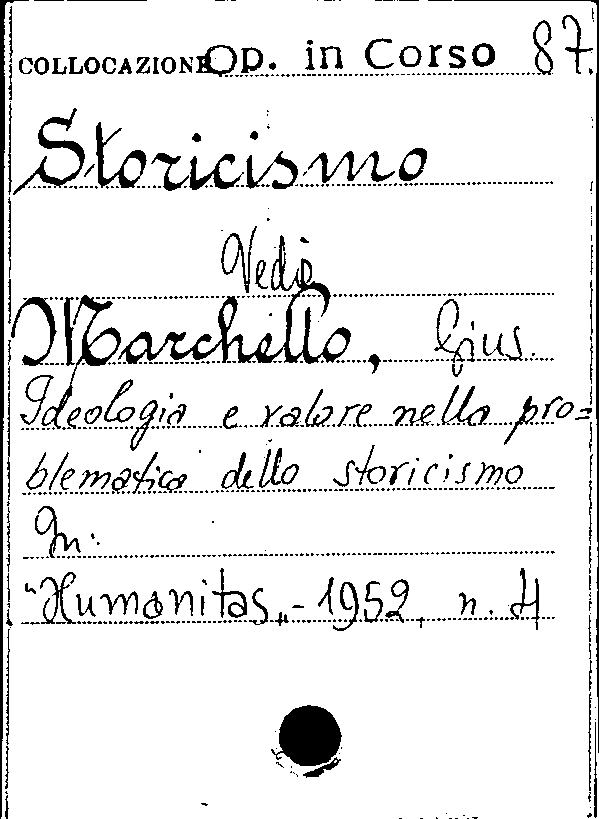 COLLOCAZIONE Op. in Corso 87.
Storicismo
Vedi
Marchello, Gius.
Ideologia e valore nella pro=
blematica dello storicismo
In:
"Humanitas„- 1952, n. 4